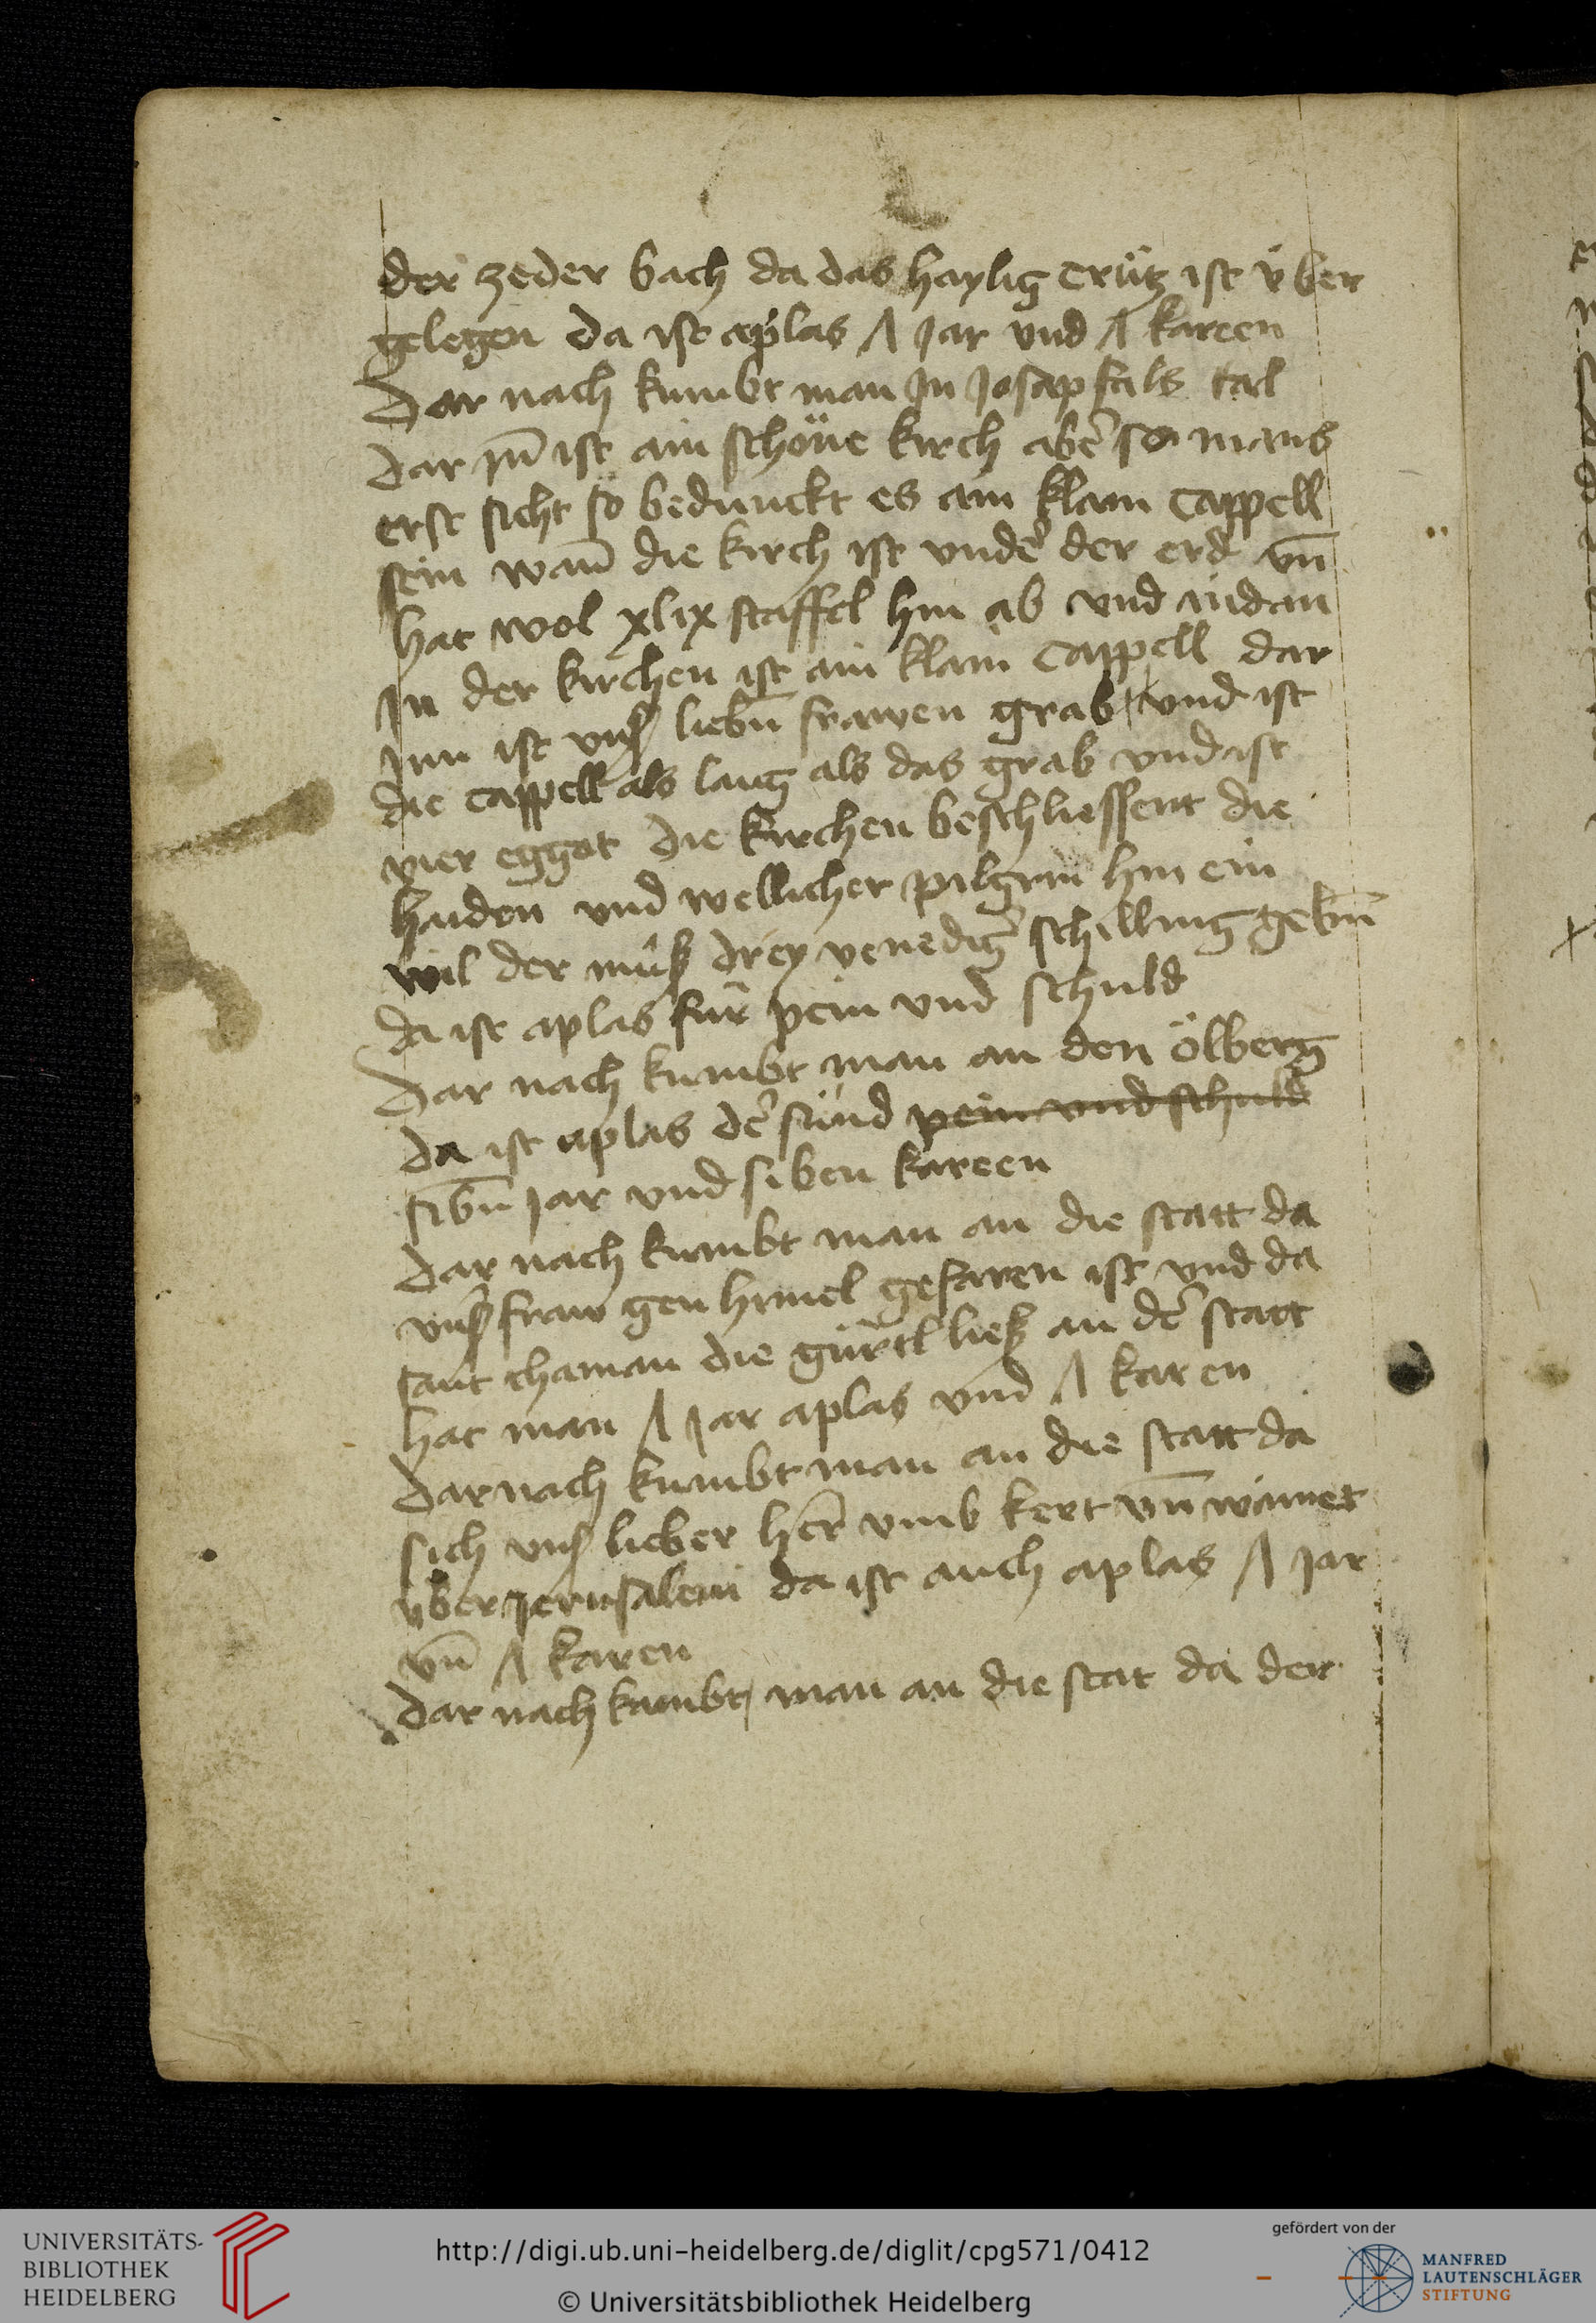 der zeder bach da das haylig Crütz ist v̈ber
gelegen da ist aplas Λ Jar vnd Λ kareen
Dar nach kumbt man Jn Josapfals tail
dar jn̄ ist ain schöne kirch abe͛ so mans
erst sicht so bedunckt es ain klain Cappell
sein wan̄ die kirch ist vnde͛ der erd vn̄
hat wol xlix staffel hin ab vnd nidan
Jn der kirchen ist ain klain Cappell dar
Jnn ist vnß liebn̄ frawen grab vnd ist
die Cappell als lang als das grab vnd ist
vier eggot die kirchen beschliessent die
haiden vnd wellicher pilgrin hin ein
wil der müß drey venedig͛ schilling gebn̄
da ist aplas für pein vnd schuld
Dar nach kumbt man an den ölberg
da ist aplas de͛ sünd pein vnd schuld
sibn̄ Jar vnd siben kareen
dar nach kumbt man an die statt da
vnß fraw gen himel gefaren ist vnd da
sant thaman die gürtl ließ an de͛ statt
hat man Λ Jar aplas vnd Λ karen
dar nach kumbt man an die statt da
sich vnß lieber her͛ vmb kert vn̄ wainet
v̈ber Jerusalem da ist auch aplas Λ Jar
vn̄ Λ karen
dar nach kumbt man an die stat da der
UNIVERSITÄTS-
BIBLIOTHEK
HEIDELBERG
http://digi.ub.uni-heidelberg.de/diglit/cpg571/0412
© Universitätsbibliothek Heidelberg
gefördert von der
MANFRED
LAUTENSCHLÄGER
STIFTUNG